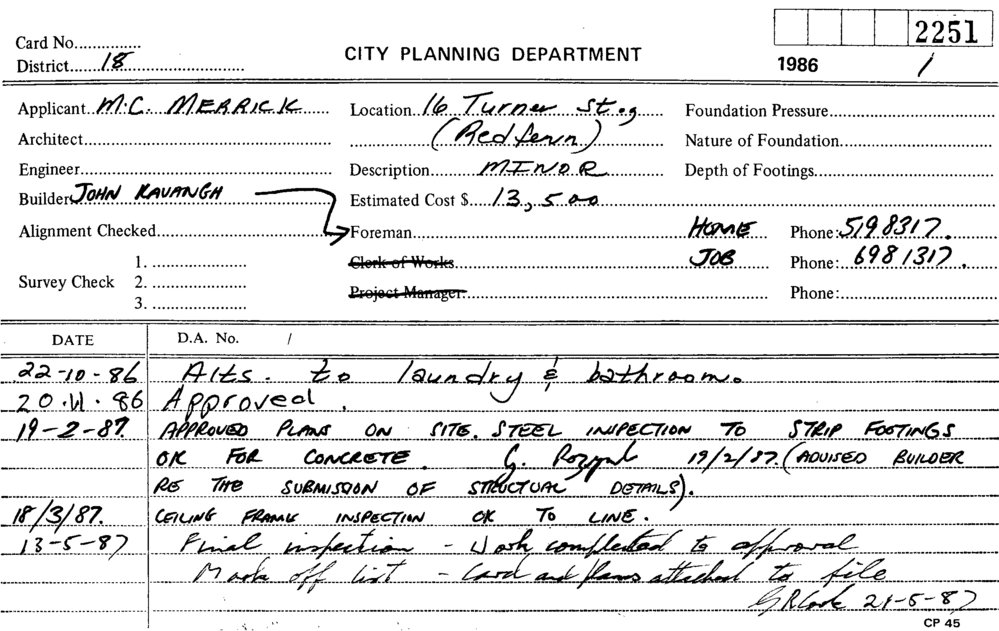 2251
Card No.
CITY PLANNING DEPARTMENT
District 18
1986 1
Applicant M.C. MERRICK Location 16 Turner St. Foundation Pressure
Architect (Redfern) Nature of Foundation
Engineer Description MINOR Depth of Footings
Builder JOHN KAVANGH Estimated Cost $ 13,500
Alignment Checked Foreman HOME Phone: 5198317.
1. Clerk of Works JOB Phone: 6981317.
Survey Check 2.
Project Manager Phone:
3.
DATE D.A. No. /
22-10-86 Alts. to laundry & bathroom.
20.11.86 Approved.
19-2-87. APPROVED PLANS ON SITE. STEEL INSPECTION TO STRIP FOOTINGS
OK FOR CONCRETE. G. 19/2/87. (ADVISED BUILDER
RE THE SUBMISSION OF STRUCTUAL DETAILS).
18/3/87. CEILING FRAME INSPECTION OK TO LINE.
13-5-87 Final inspection - Work completed to approval
Mark off list - Card and plans attached to file
GRCook 21-5-87
CP 45